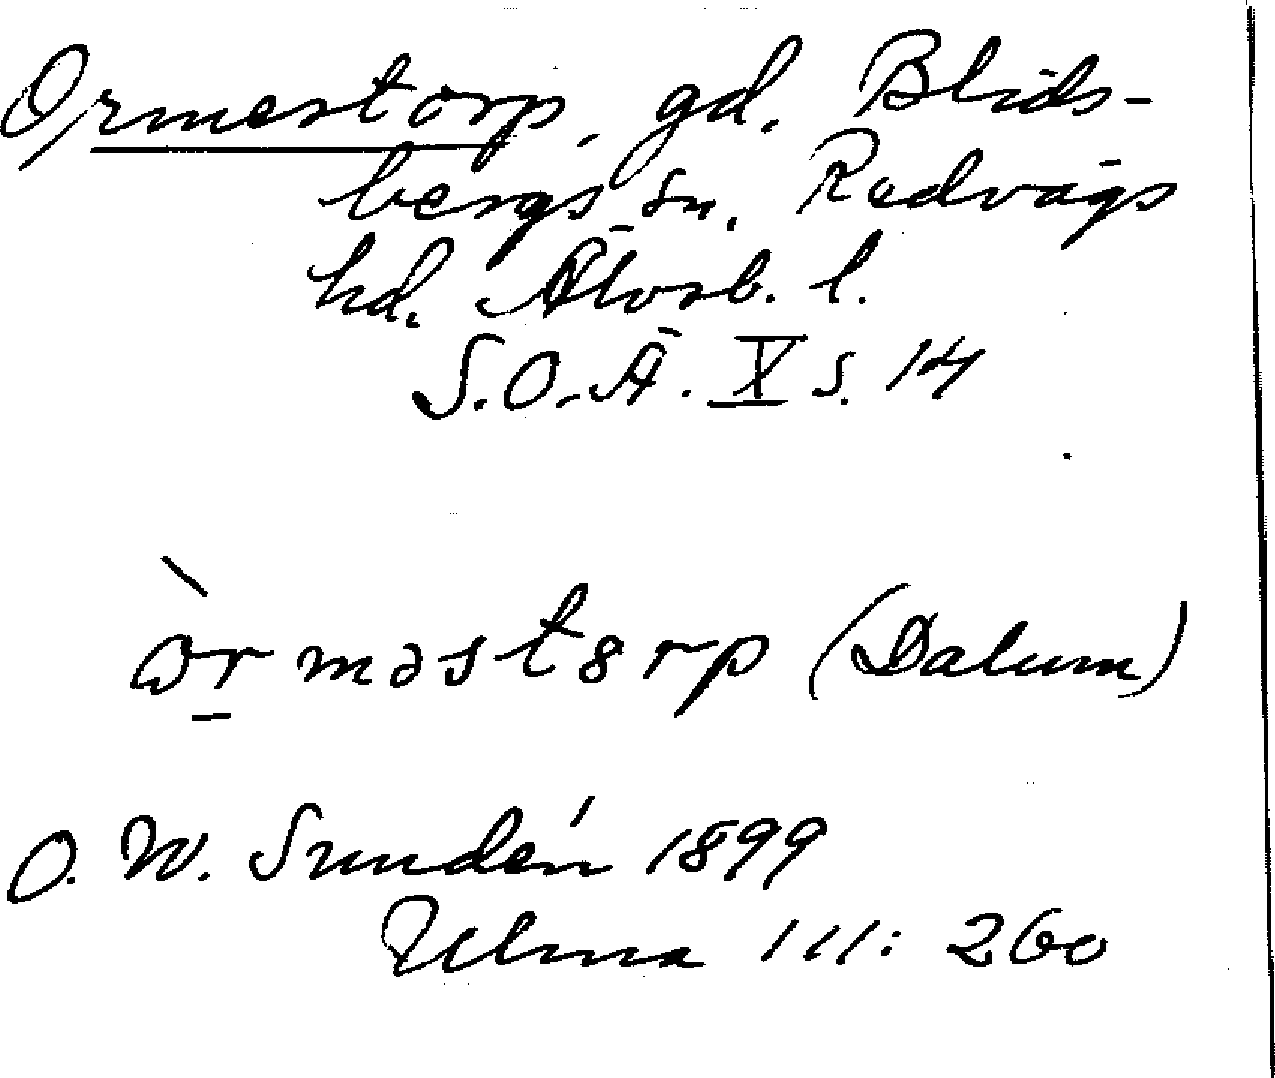 Ormestorp, gd. Blids-
bergs sn. Redvägs
hd. Älvsb. l.
S.O.Ä. X s. 14
òr̠məst8rp (Dalum)
O. W. Sundén 1899
Ulma 111: 260